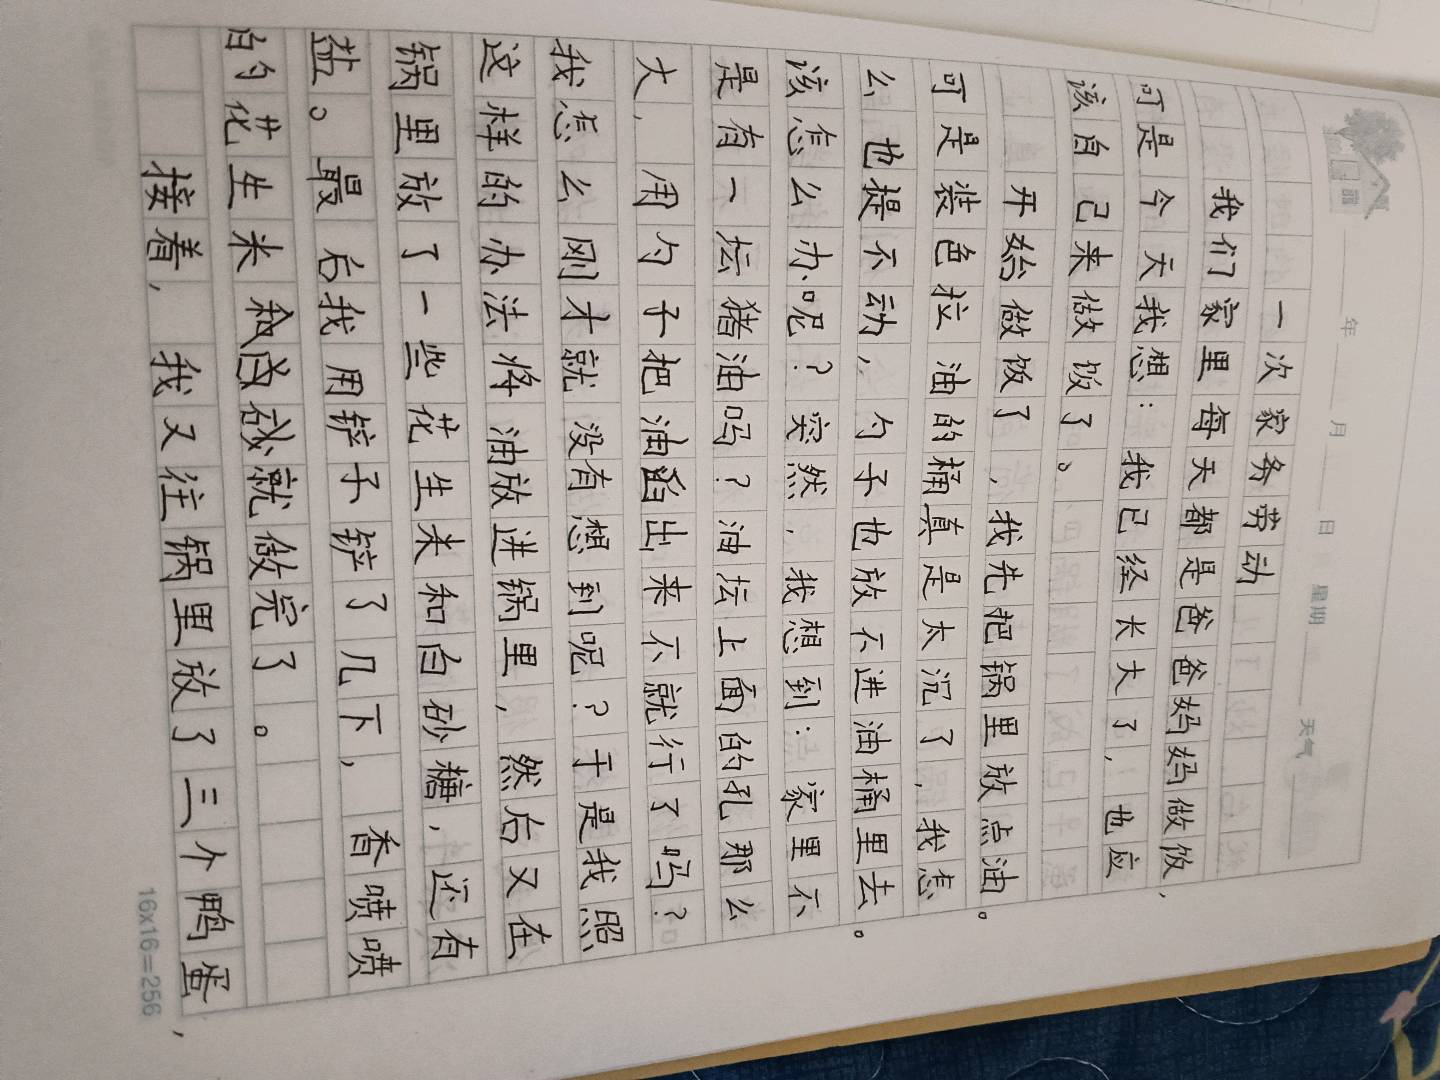 年 月 日 星期 天气
一次家务劳动
我们家里每天都是爸爸妈妈做饭，
可是今天我想：我已经长大了，也应
该自己来做饭了。
开始做饭了，我先把锅里放点油。
可是装色拉油的桶真是太沉了，我怎
么也提不动，勺子也放不进油桶里去。
该怎么办呢？突然，我想到：家里不
是有一坛猪油吗？油坛上面的孔那么
大，用勺子把油舀出来不就行了吗？
我怎么刚才就没有想到呢？于是我照
这样的办法将油放进锅里，然后又在
锅里放了一些花生米和白砂糖，还有
盐。最后我用铲子铲了几下，香喷喷
的花生米就做完了。
接着，我又往锅里放了三个鸭蛋，
16x16=256